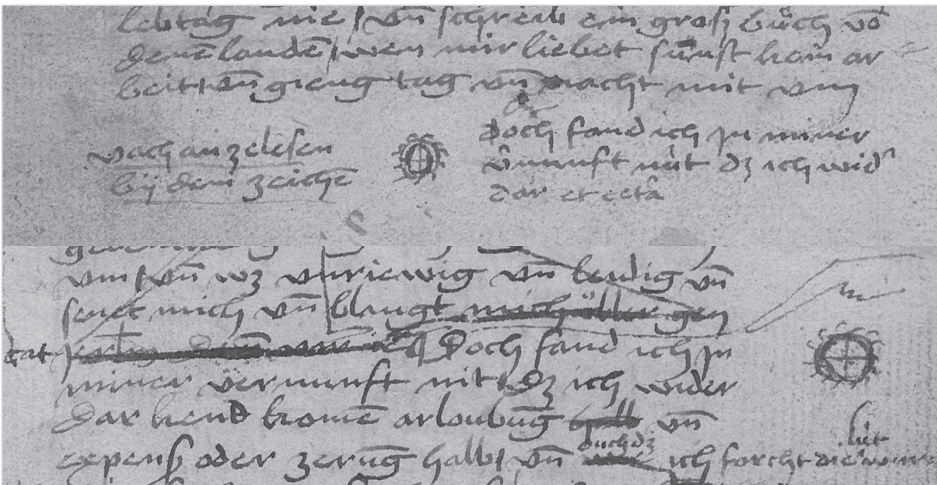 lebtag nie / vn̄ schreib ein grosz bůch vō
denē landē / wen mir liebet sunst kein ar
beit tēn gieng tag vn̄ nacht mit vm
nach an zelesen
bÿ dem zeichē
doch fand ich jn miner
vnunft nüt dz ich wid
dar et cetā
vm / vn̄ wz vnriewig vn̄ leidig vn̄
senet mich vn̄ blangt mich
Doch fand ich jn
miner vernunft nit dz ich wider
dar kend komē arloubūg halb vn̄
expenß oder zerūg halb / vn̄ ouch dz ich forcht die lüt